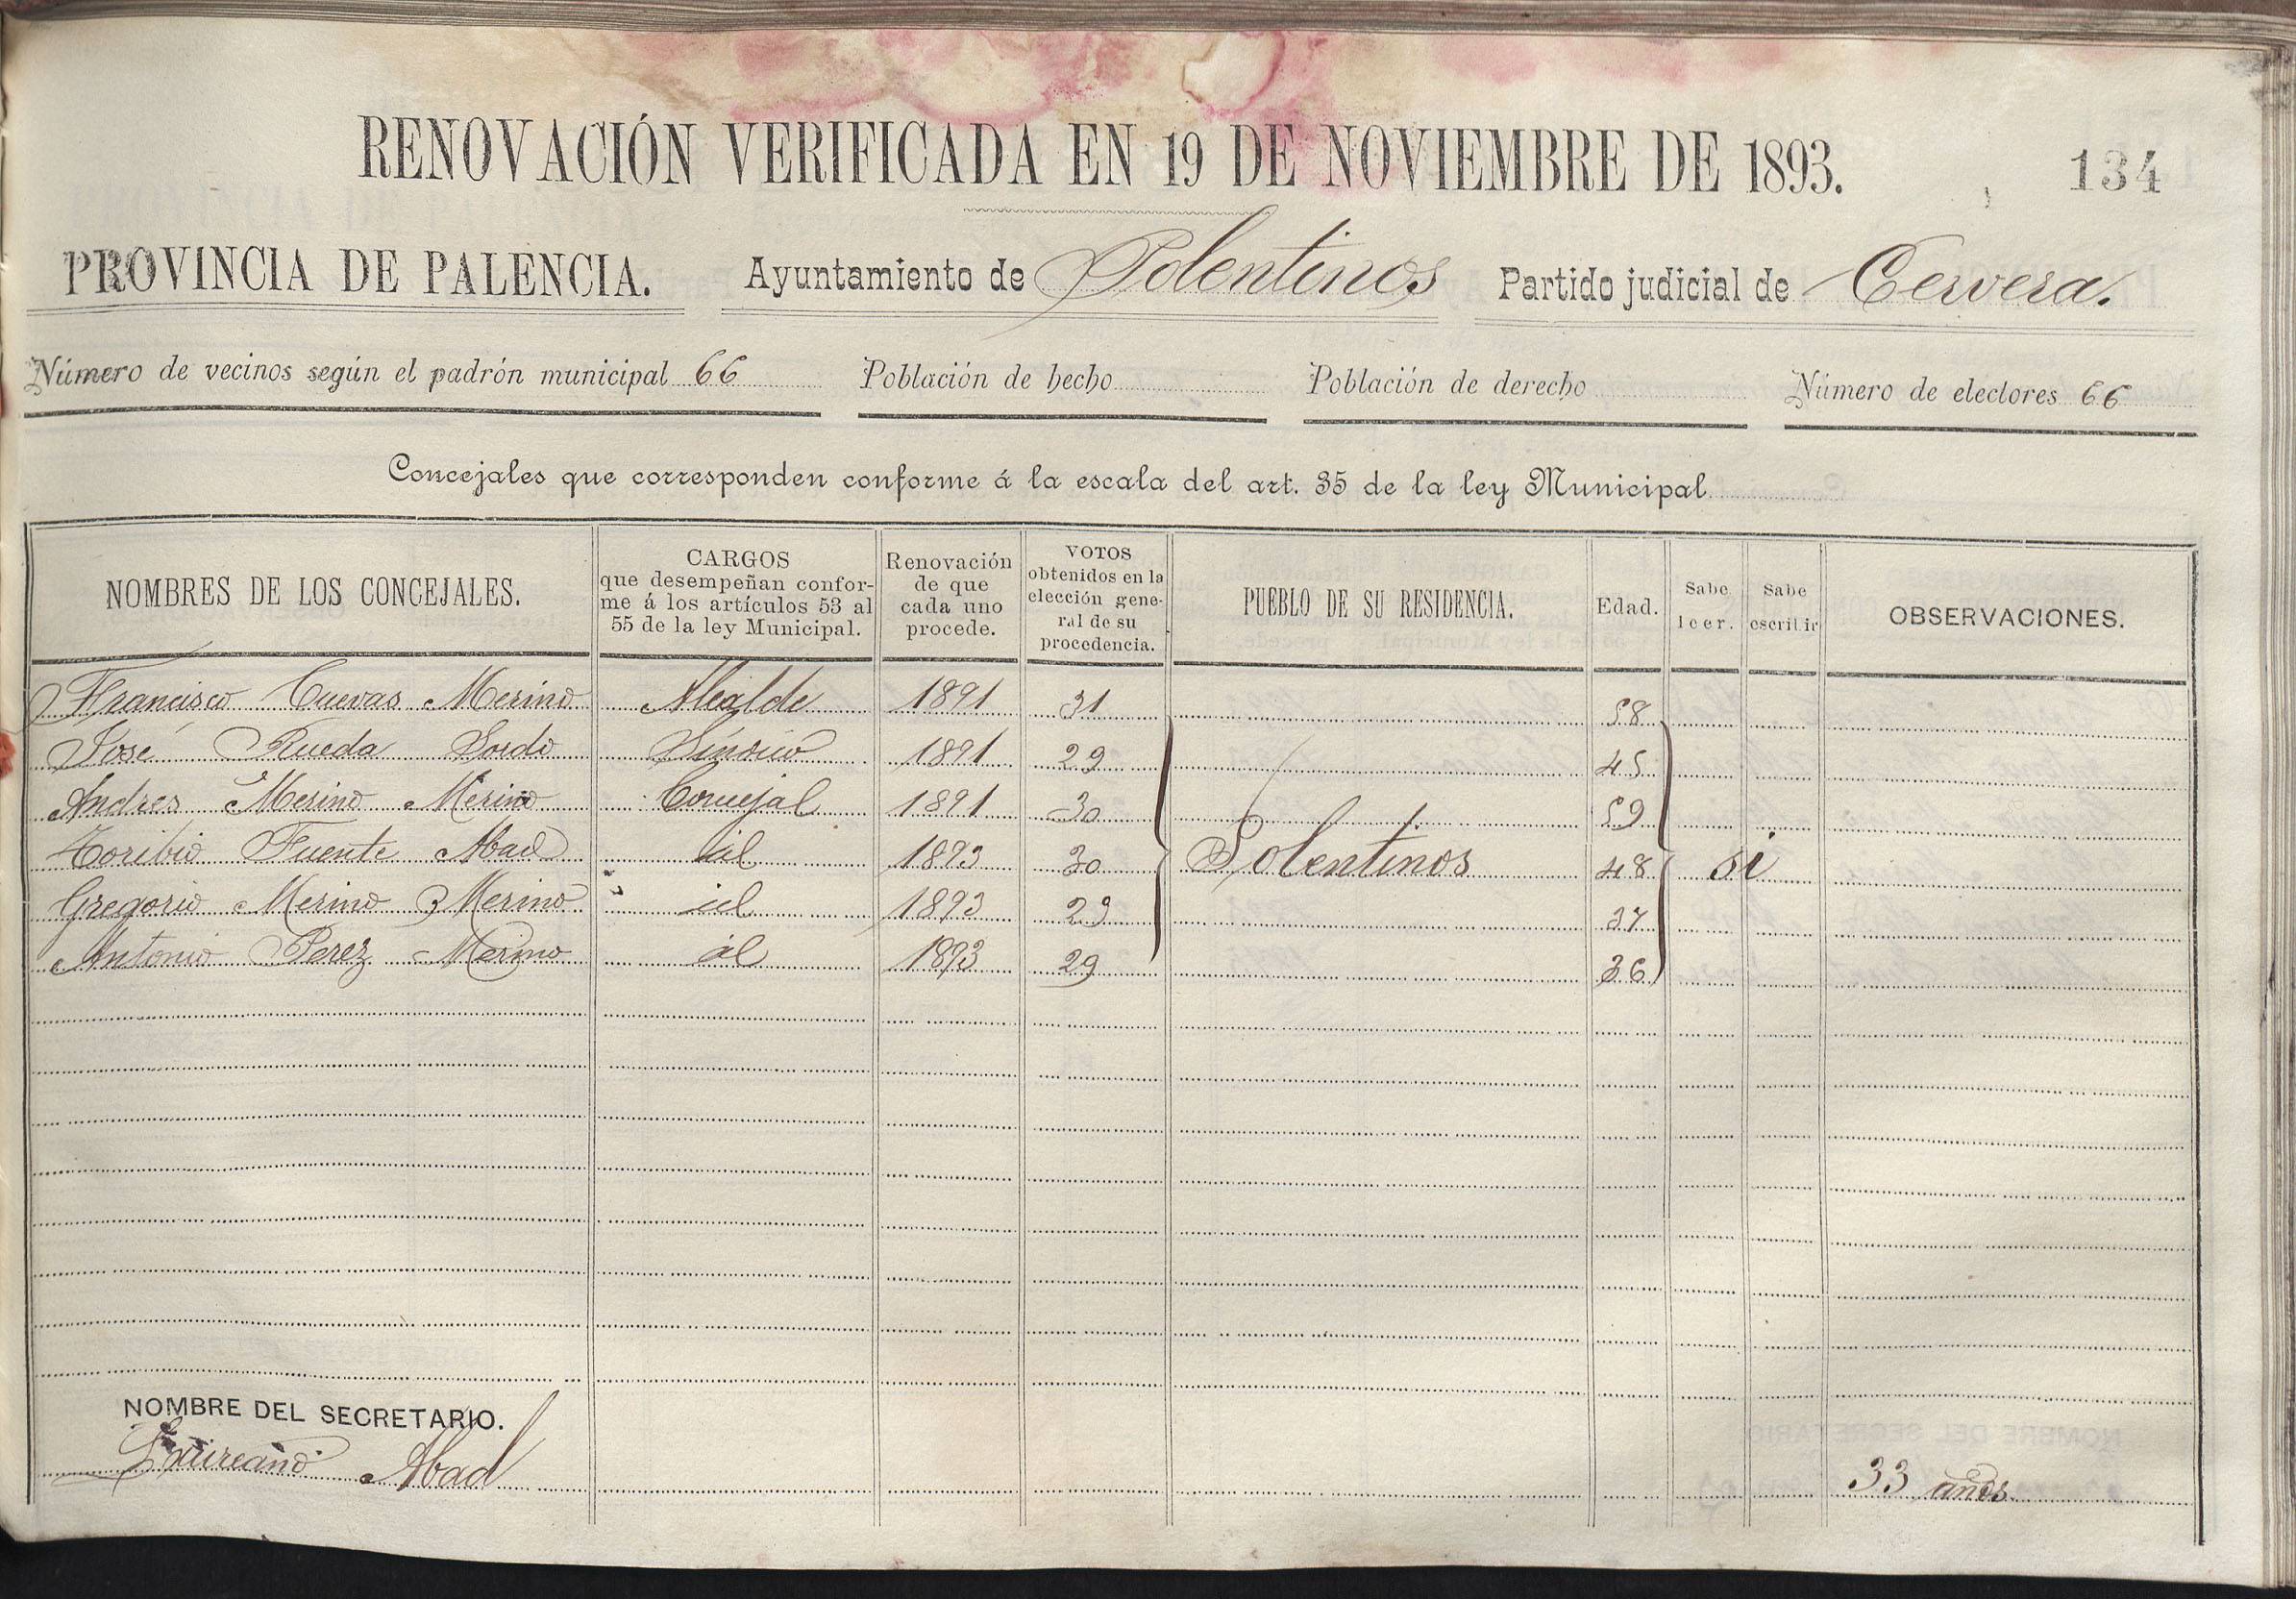 RENOVACIÓN VERIFICADA EN 19 DE NOVIEMBRE DE 1893. 134
PROVINCIA DE PALENCIA. Ayuntamiento de Polentinos Partido judicial de Cervera.
Número de vecinos según el padrón municipal 66 Población de hecho Población de derecho Número de electores 66
Concejales que corresponden conforme á la escala del art. 35 de la ley Municipal
NOMBRES DE LOS CONCEJALES.
CARGOS
que desempeñan confor-
me á los artículos 53 al
55 de la ley Municipal.
Renovación
de que
cada uno
procede.
VOTOS
obtenidos en la
elección gene-
ral de su
procedencia.
PUEBLO DE SU RESIDENCIA.
Edad.
Sabe
leer.
Sabe
escribir
OBSERVACIONES.
Francisco Cuevas Merino Alcalde 1891 31 58
José Rueda Sordo Síndico 1891 29 45
Andres Merino Merino Concejal 1891 30 59
Toribio Fuente Abad id 1893 30 Polentinos 48 si
Gregorio Merino Merino id 1893 29 37
Antonio Perez Merino id 1893 29 36
NOMBRE DEL SECRETARIO.
Laureano Abad 33 años